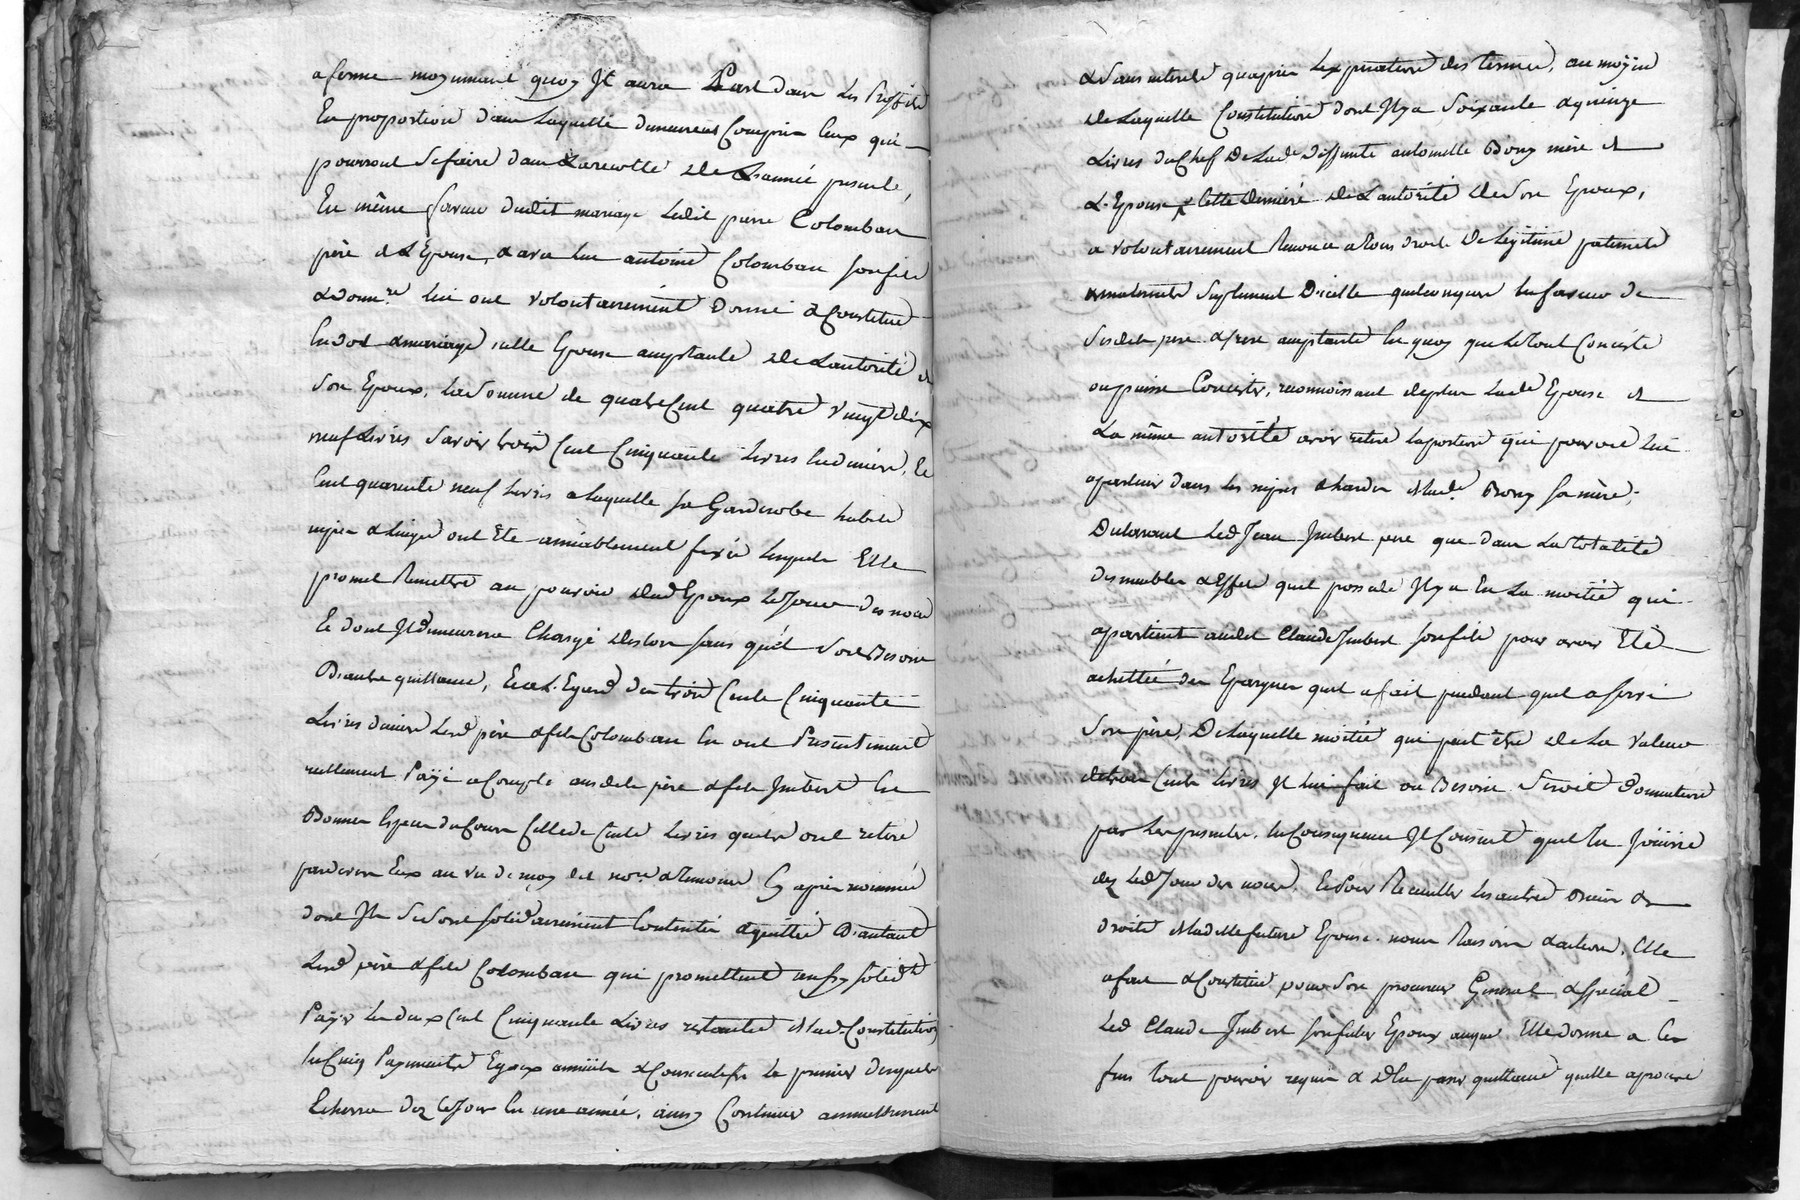 a ferme moyennant quoy Il aura Part dans les Proffits
En proportion dans Laquelle demeurent Compris Ceux qui
pourront se faire dans La recolte de L'année presente,
En même faveur dudit mariage Ledit pierre Colomban
père de L'Epouse, & avec luy antoine Colomban son fils
& donn.re lui ont volontairement donné & Constitué
En dot & mariage a elle Epouse acceptante de L'autorité de
son Epoux, La somme de quatre Cent quatre vingt dix
neuf Livres Savoir trois Cent Cinquante Livres En deniers, Et
Cent quarante neuf Livres a laquelle sa Garderobe habits
nipes & Linges ont Eté amiablement fixés lesquels Elle
promet Remettre au pouvoir dud Epoux Le Jour des noces
Et dont Il demeurera Chargé deslors sans qu'il soit Besoin
D'autre quittance, Et a L'Egard des trois Cents Cinquante
Livres deniers Lesd père & fils Colomban En ont Presentement
reellement Payé a Compte ausdits père & fils Imbert En
Bonnes Especes du Cours Celle de Cents Livres qu'eux ont retiré
pardevers Eux au vu de moy dit no.re & temoins Cy après nommés
dont Ils se sont solidairement Contentés & quitté D'autant
Lesd père & fils Colomban qui promettent aussy solid.t
Payer Les deux Cent Cinquante Livres restantes de lad. Constitution
En Cinq Payements Egaux annuels & Consecutifs Le premier desquels
Echerra dez ce Jour En une année, ainsy Continuer annuellement
& sans interets qu'après L'expiration des termes, au moÿen
de Laquelle Constitution dont Il y a Soixante & quinze
Livres du Chef de Lad.e Deffunte antoinette Bony mère de
L'Epouse, Cette Derniere de L'autorité de son Epoux,
a volontairement Renoncé a tous droits de Legitime paternels
maternels suplement D'icelle quelconques En faveur de
Sesdits pere & frere acceptants En quoy que Le tout Consiste
ou puisse Consister, reconnoissant de plus Lad.e Epouse de
La même autorité avoir retiré La portion qui pouvoit lui
apartenir dans les nipes & hardes de lad.e Bony sa mère,
Declarant Led Jean Imbert pere que dans La totalité
des meubles & Effets qu'il possede Il y a En La moitié qui
apartient audit Claude Imbert son fils pour avoir Eté
achettée des Epargnes qu'il a fait pendant qu'il a servi
son père, De Laquelle moitié qui peut être de La valeur
de trois Cents Livres Il lui fait ou Besoin seroit donnation
par Les presentes. En Consequence Il Consent qu'il En Jouisse
dez Led Jour des noces, Et pour Recueillir les autres Biens &
droits de ladite future Epouse noms Raisons & actions, Elle
a fait & Constitué pour son procureur General & special
Led Claude Imbert son futur Epoux auquel Elle donne a Ces
fins tout pouvoir requis & de la passer quittance qu'elle aprouve